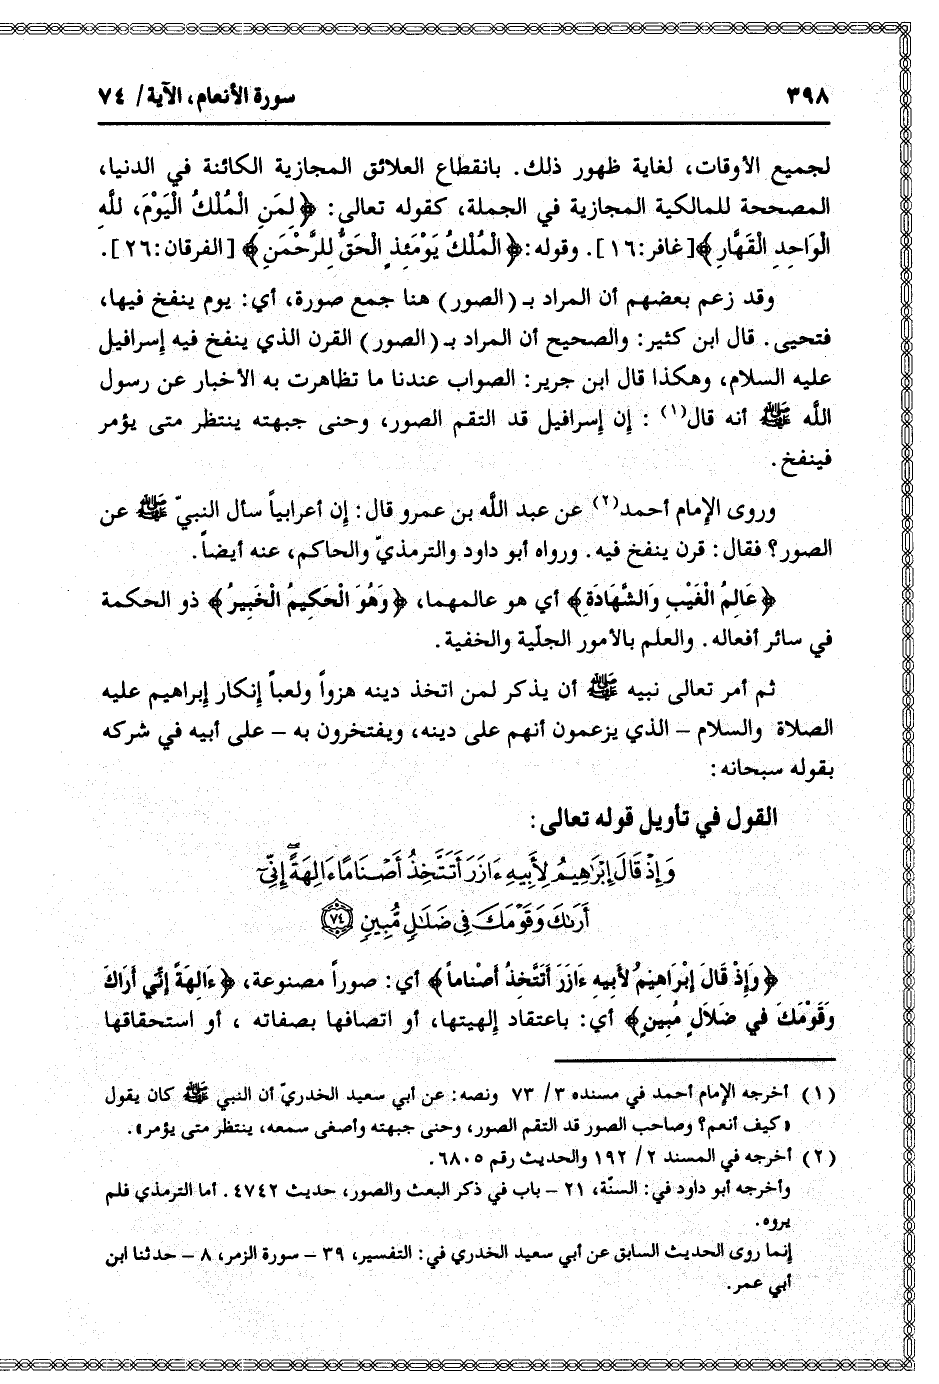 ٣٩٨ سورة الأنعام، الآية/ ٧٤
لجميع الأوقات، لغاية ظهور ذلك. بانقطاع العلائق المجازية الكائنة في الدنيا،
المصححة للمالكية المجازية في الجملة، كقوله تعالى: ﴿لِمَنِ الْمُلْكُ الْيَوْمَ، للَّهِ
الْوَاحِدِ الْقَهَّارِ﴾[غافر:١٦]. وقوله:﴿الْمُلْكُ يَوْمَئِذٍ الْحَقُّ لِلرَّحْمَنِ﴾ [الفرقان:٢٦].
وقد زعم بعضهم أن المراد بـ (الصور) هنا جمع صورة، أي: يوم ينفخ فيها،
فتحيى. قال ابن كثير: والصحيح أن المراد بـ (الصور) القرن الذي ينفخ فيه إسرافيل
عليه السلام، وهكذا قال ابن جرير: الصواب عندنا ما تظاهرت به الأخبار عن رسول
اللَّه ﷺ أنه قال(١) : إن إسرافيل قد التقم الصور، وحنى جبهته ينتظر متى يؤمر
فينفخ.
وروى الإمام أحمد(٢) عن عبد اللَّه بن عمرو قال: إن أعرابياً سأل النبيّ ﷺ عن
الصور؟ فقال: قرن ينفخ فيه. ورواه أبو داود والترمذيّ والحاكم، عنه أيضاً.
﴿عَالِمُ الْغَيْبِ وَالشَّهَادَةِ﴾ أي هو عالمهما، ﴿وَهُوَ الْحَكِيمُ الْخَبِيرُ﴾ ذو الحكمة
في سائر أفعاله. والعلم بالأمور الجلّية والخفية.
ثم أمر تعالى نبيه ﷺ أن يذكر لمن اتخذ دينه هزواً ولعباً إنكار إبراهيم عليه
الصلاة والسلام – الذي يزعمون أنهم على دينه، ويفتخرون به – على أبيه في شركه
بقوله سبحانه:
القول في تأويل قوله تعالى:
وَإِذْ قَالَ إِبْرَٰهِيمُ لِأَبِيهِ ءَازَرَ أَتَتَّخِذُ أَصْنَامًا ءَالِهَةً ۖ إِنِّىٓ
أَرَىٰكَ وَقَوْمَكَ فِى ضَلَٰلٍ مُّبِينٍ ۝٧٤
﴿وَإِذْ قَالَ إِبْرَاهِيمُ لأَبِيهِ ءَازَرَ أَتَتَّخِذُ أَصْنَاماً﴾ أي: صوراً مصنوعة، ﴿ءَالِهَةً إِنِّي أَرَاكَ
وَقَوْمَكَ فِي ضَلَالٍ مُبِينٍ﴾ أي: باعتقاد إلهيتها، أو اتصافها بصفاته ، أو استحقاقها
(١) أخرجه الإمام أحمد في مسنده ٣/ ٧٣ ونصه: عن أبي سعيد الخدريّ أن النبي ﷺ كان يقول
«كيف أنعم؟ وصاحب الصور قد التقم الصور، وحنى جبهته وأصغى سمعه، ينتظر متى يؤمر».
(٢) أخرجه في المسند ٢/ ١٩٢ والحديث رقم ٦٨٠٥.
وأخرجه أبو داود في: السنّة، ٢١ – باب في ذكر البعث والصور، حديث ٤٧٤٢. أما الترمذي فلم
يروه.
إنما روى الحديث السابق عن أبي سعيد الخدري في: التفسير، ٣٩ – سورة الزمر، ٨ – حدثنا ابن
أبي عمر.